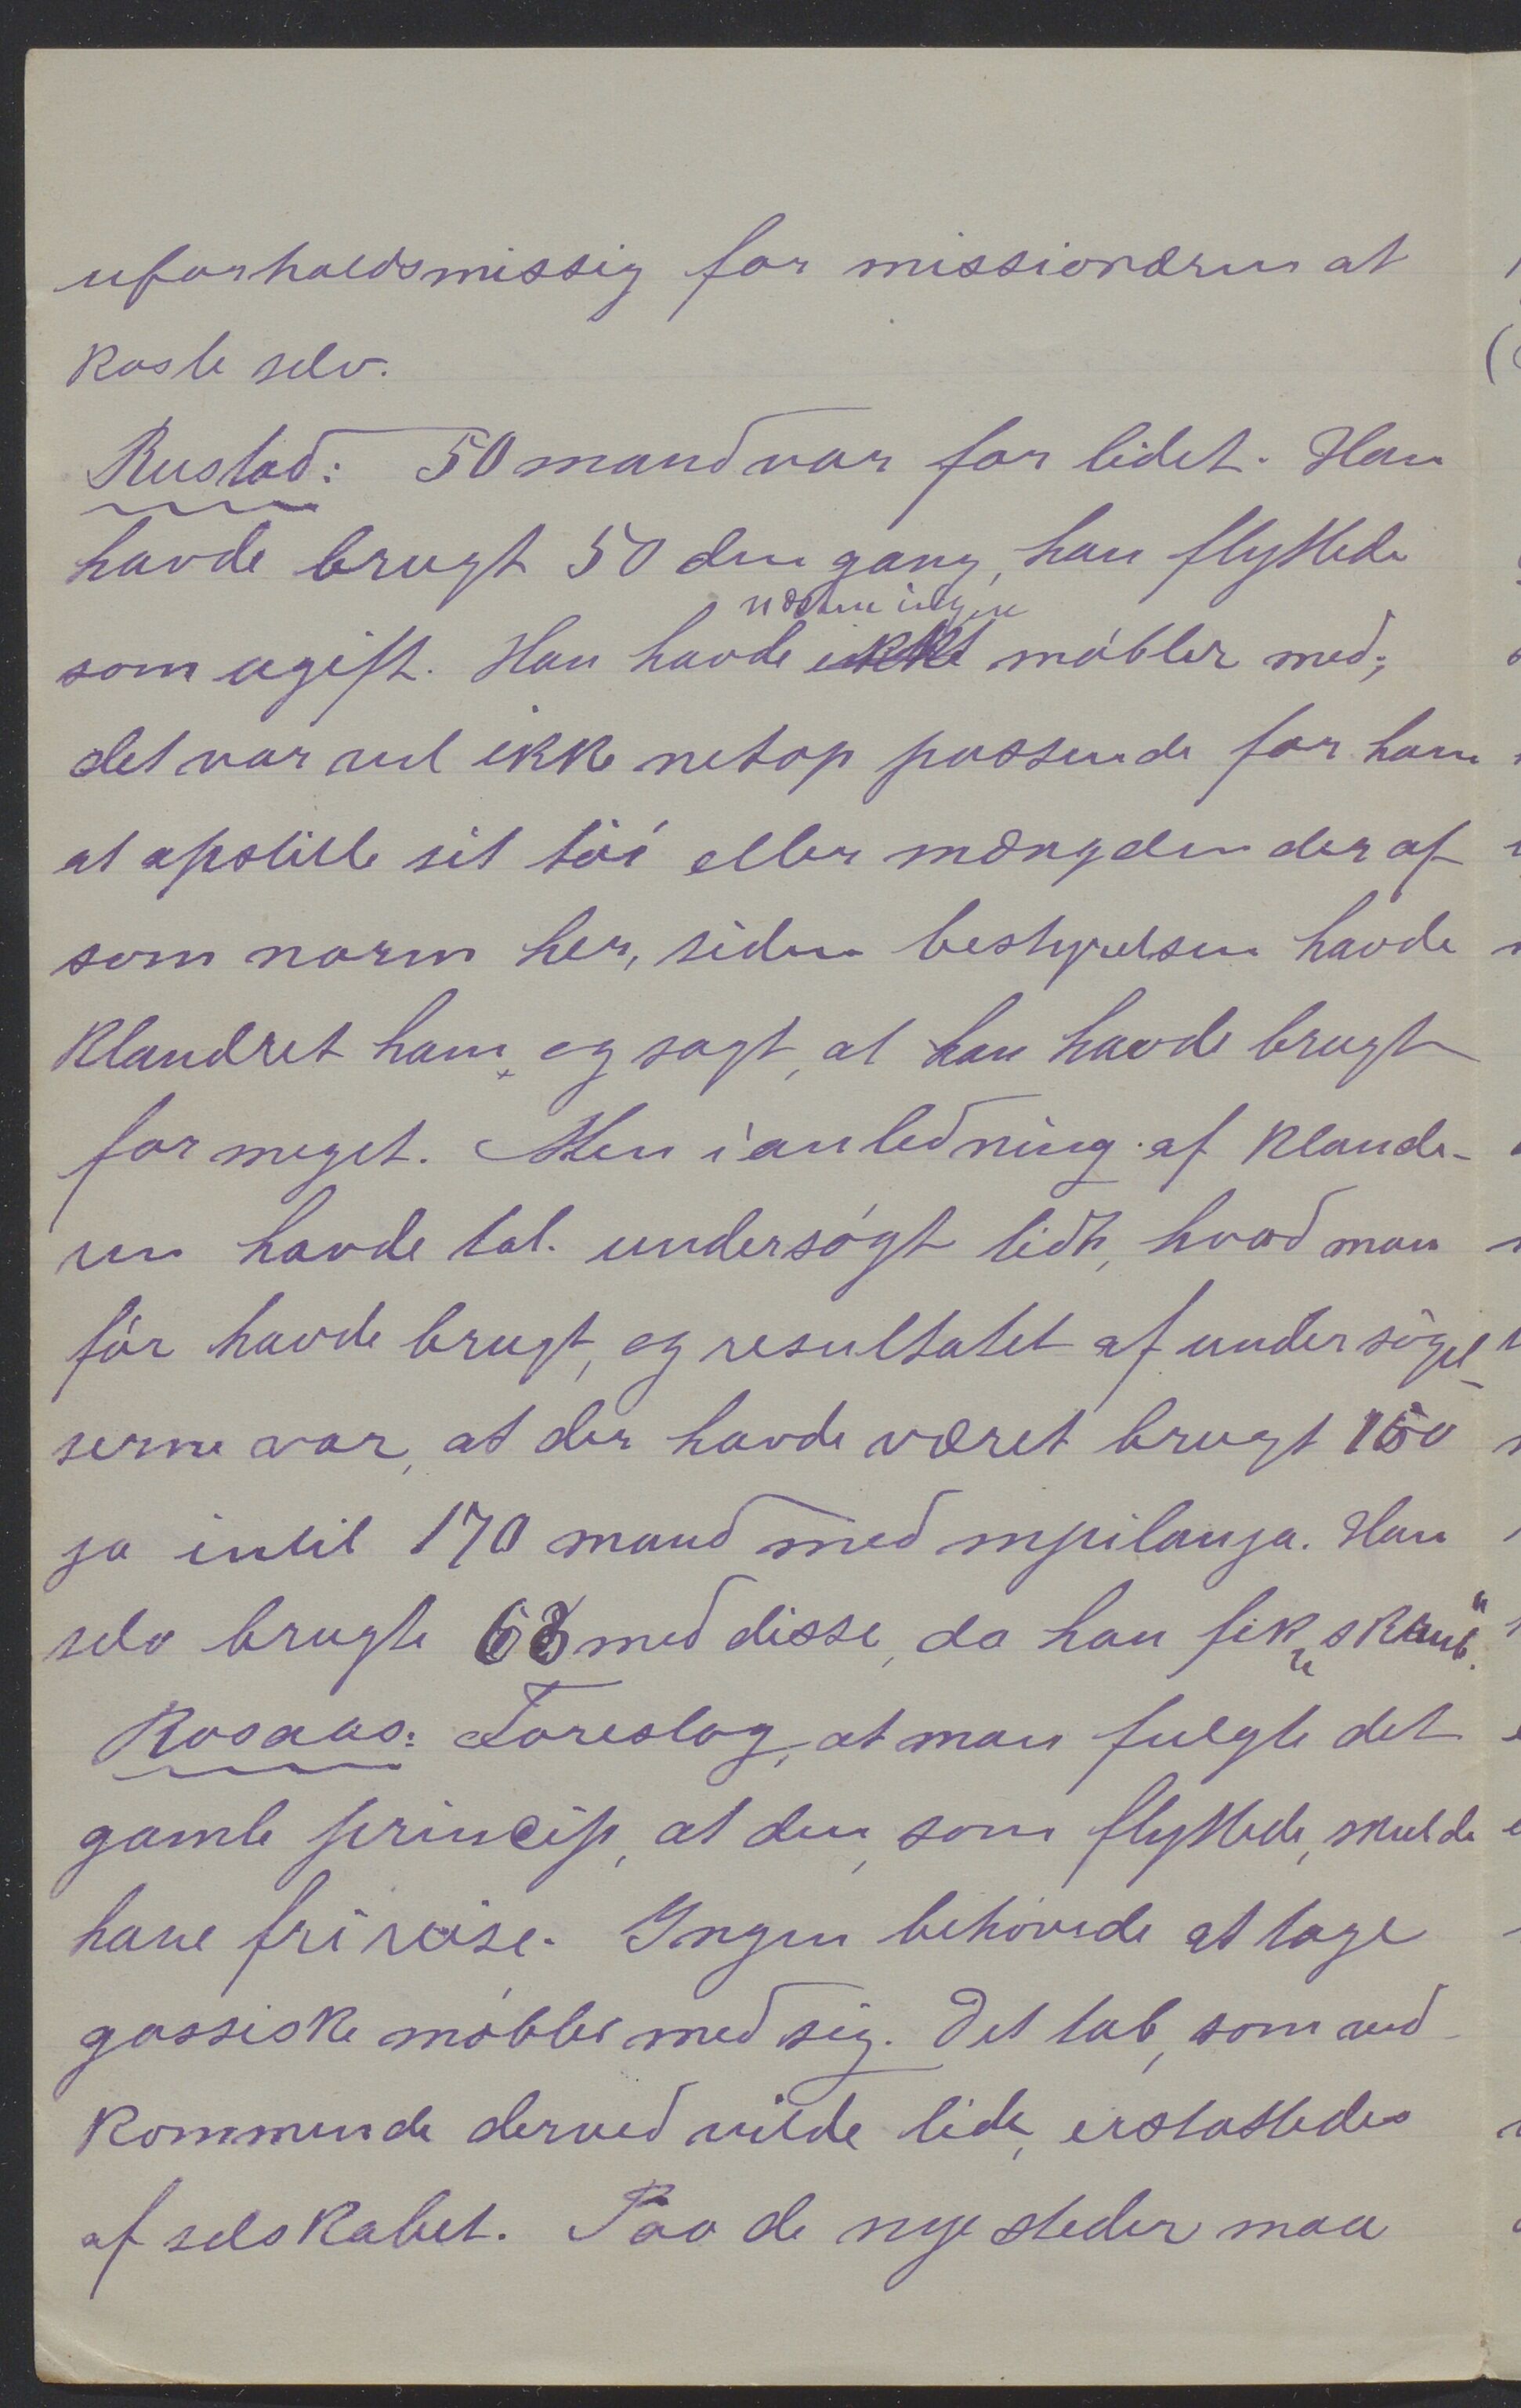 uforholdsmæssig for missionæren at
koste selv.
Rustad: 50 mand var for lidet. Han
havde brugt 50 den gang, han flyttede
som ugift. Han havde næsten ingen møbler med;
det var vel ikke netop passende for ham
at opstille sit tøi eller mængden deraf
som norm her, siden bestyrelsen havde
klandret ham og sagt, at han havde brugt
for meget. Men i anledning af klande-
ren havde tal. undersøgt lidt, hvad man
før havde brugt, og resultatet af undersøgel-
serne var, at der havde været brugt 150
ja indtil 170 mand med mpilanja. Han
selv brugte 63 med disse, da han fik „skjænd“.
Rosaas: Foreslog, at man fulgte det
gamle princip, at den, som flyttede, skulde
have fri reise. Ingen behøvede at tage
gassiske møbler med sig. Det tab, som ved-
kommende derved vilde lide, erstattedes
af selskabet. Paa de nye steder maa